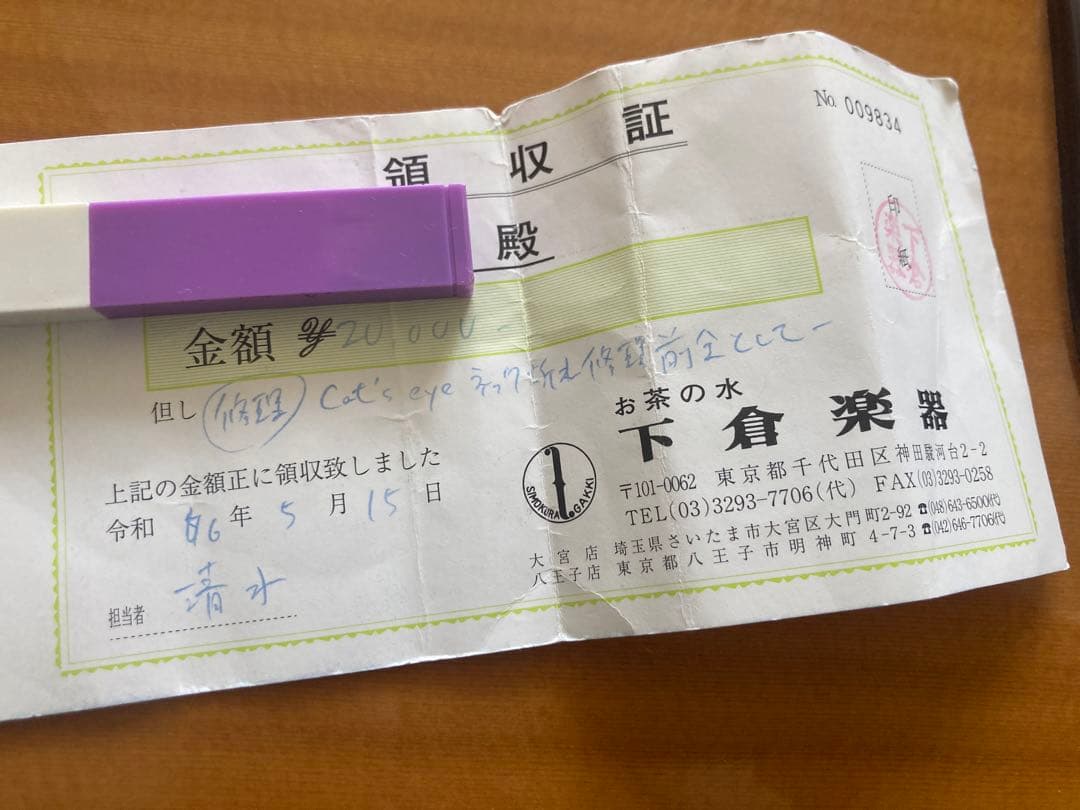 No. 009834
領収証
殿
印紙
金額 ¥20,000-
但し (修理) Cat's eye ネック折れ修理前金として-
上記の金額正に領収致しました
令和 6年 5月 15日
担当者 清水
お茶の水
下倉楽器
SIMOKURA GAKKI
〒101-0062 東京都千代田区神田駿河台2-2
TEL(03)3293-7706(代) FAX(03)3293-0258
大宮店 埼玉県さいたま市大宮区大門町2-92 ☎(048)643-6500(代)
八王子店 東京都八王子市明神町 4-7-3 ☎(042)646-7706(代)